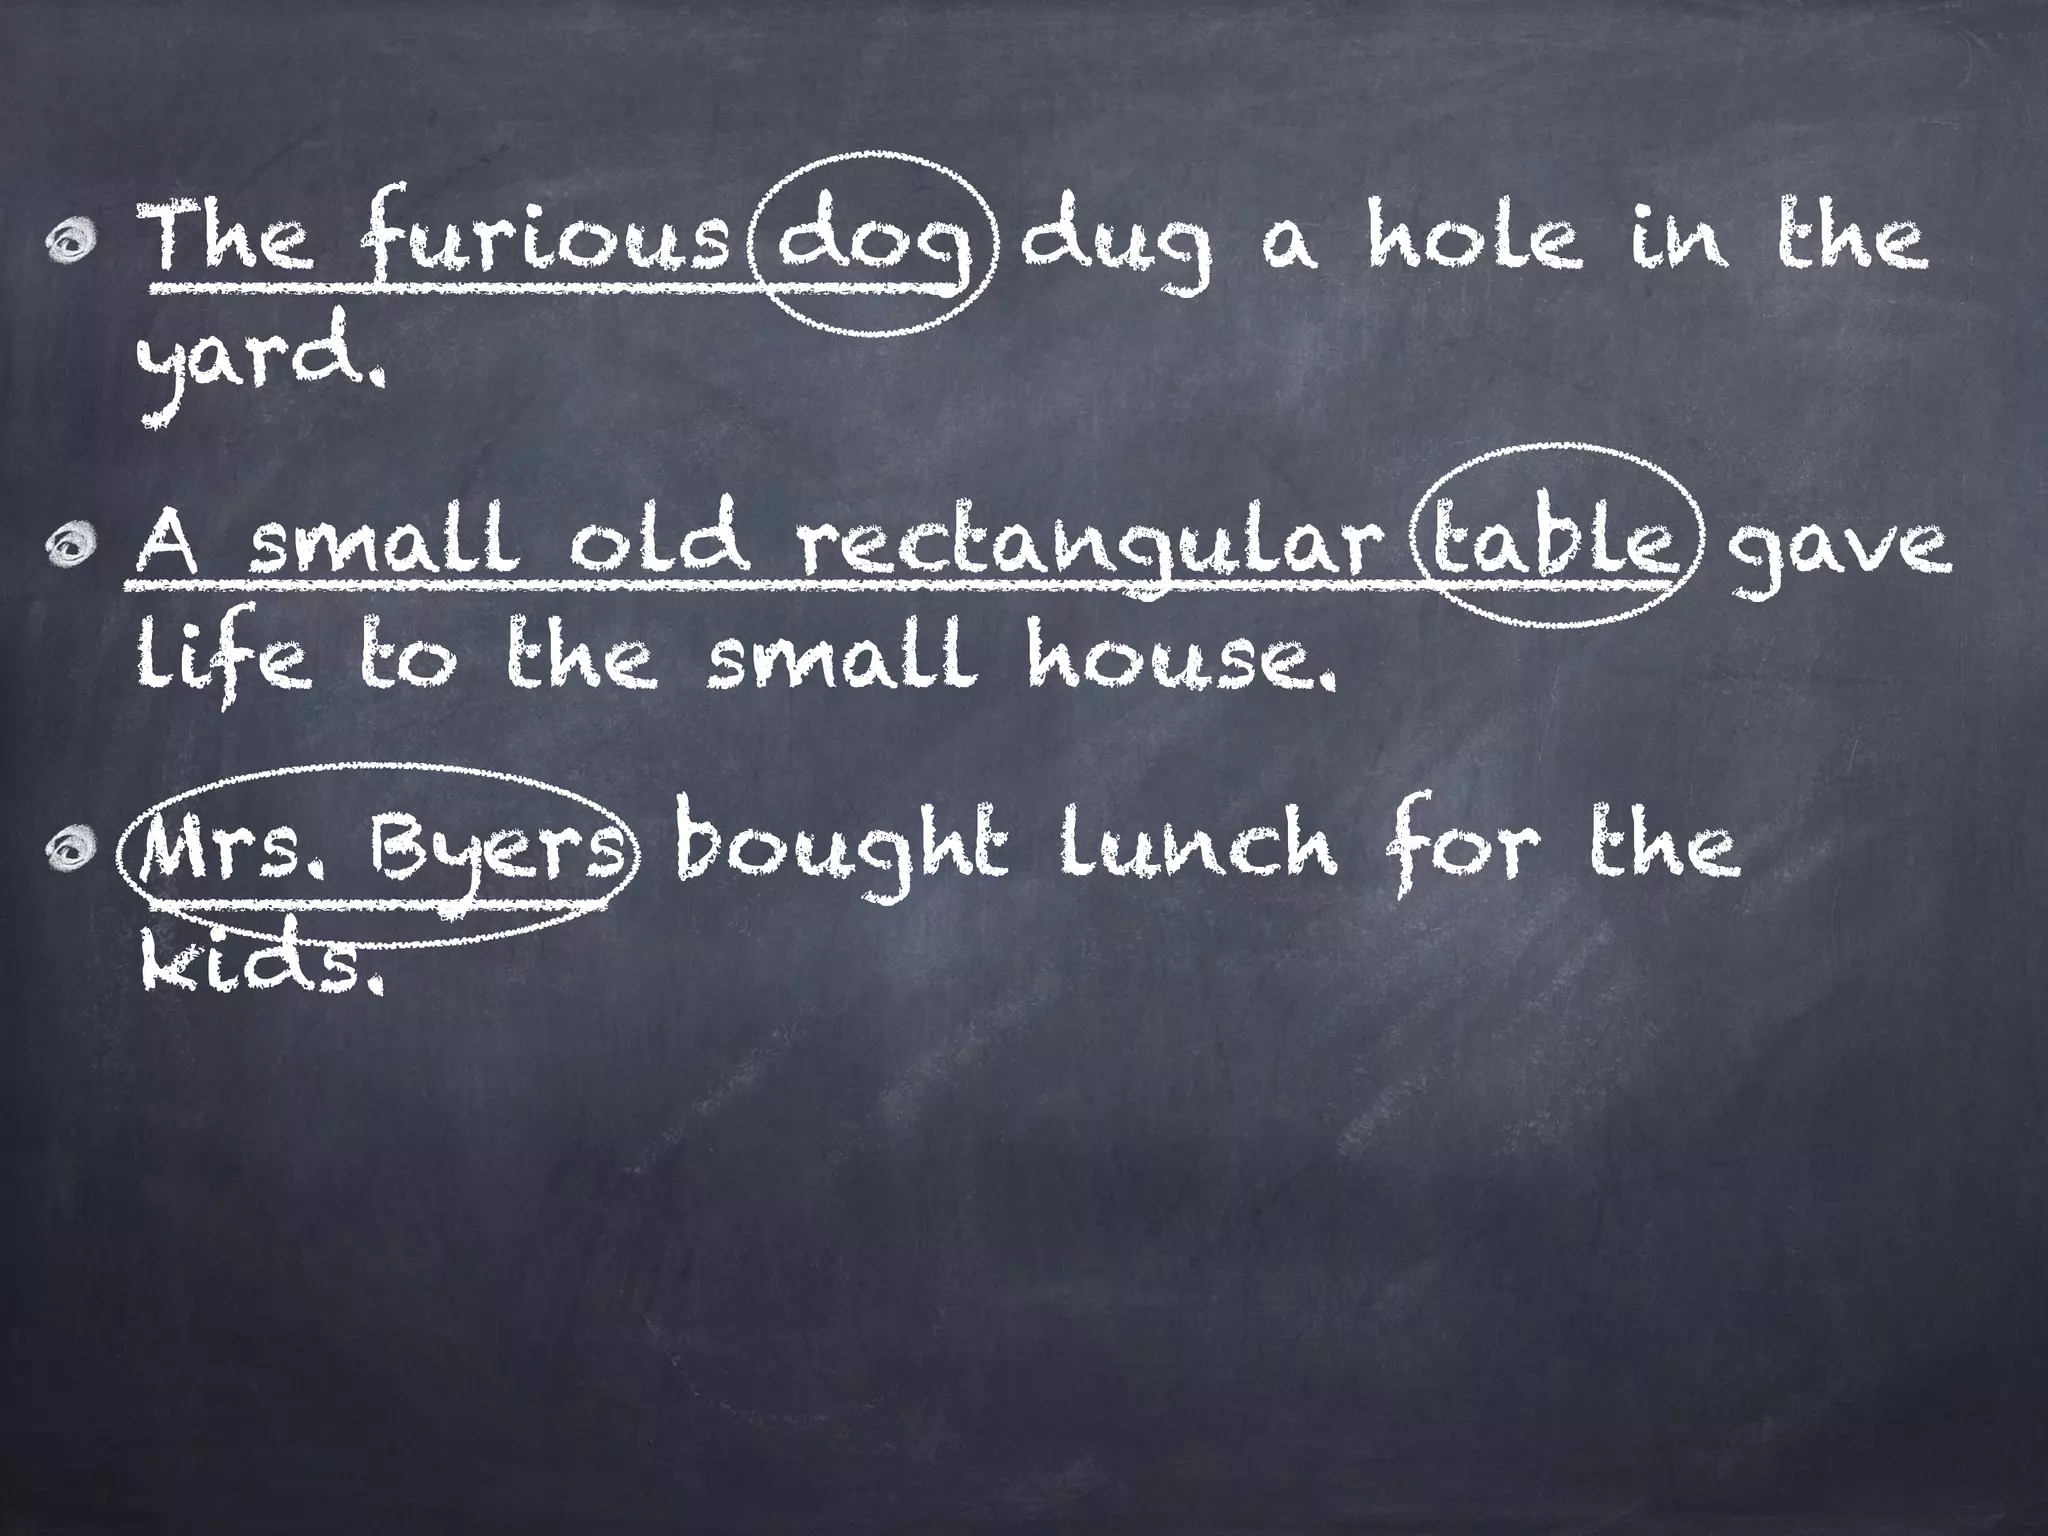 The furious dog dug a hole in the
yard.
A small old rectangular table gave
life to the small house.
Mrs. Byers bought lunch for the
kids.